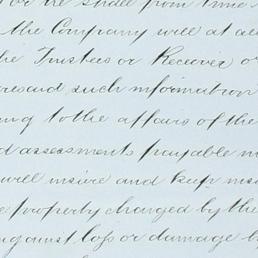 or he shall from time
the Company will at al
he Trustees or Receiver or
resaid such information
ing to the affairs of the
d assessments payable
will insure and keep ins
e property charged by the
gainst loss or damage by